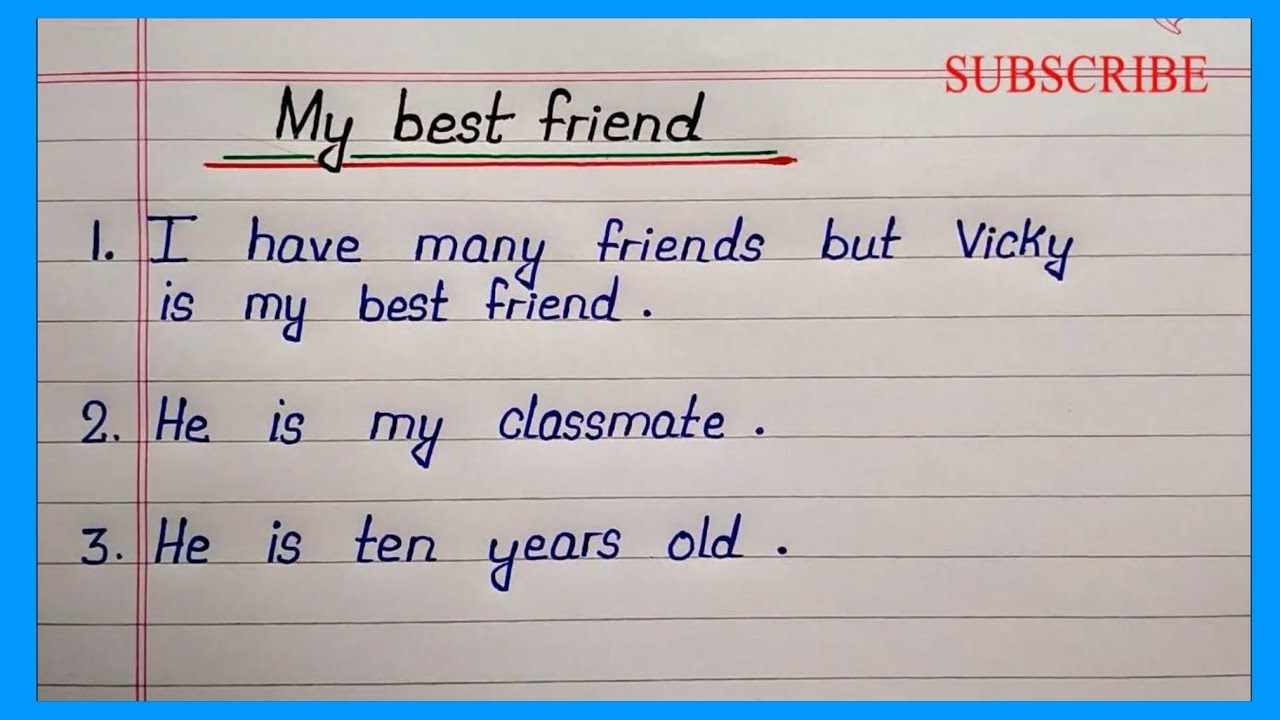 SUBSCRIBE
My best friend
1. I have many friends but Vicky
is my best friend.
2. He is my classmate.
3. He is ten years old.